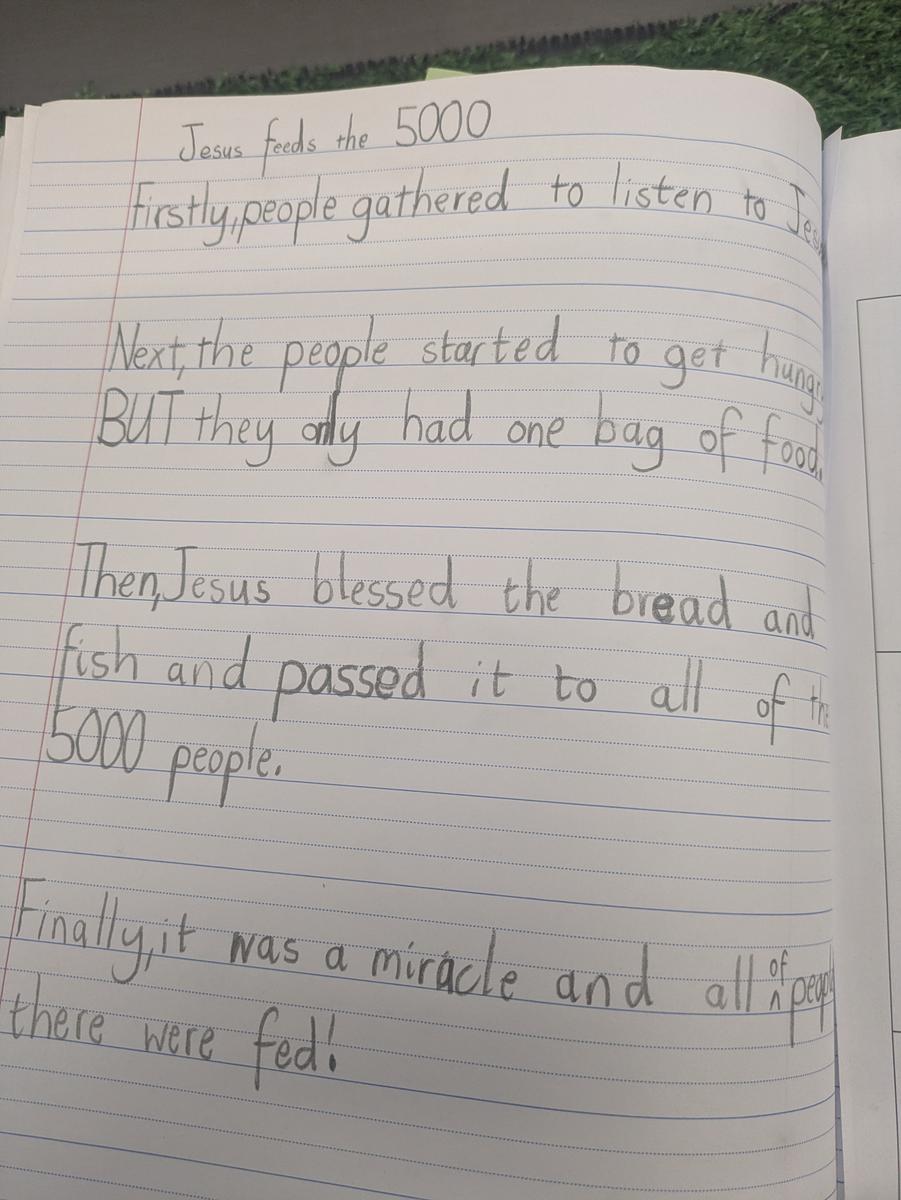 Jesus feeds the 5000
Firstly, people gathered to listen to Jesu
Next, the people started to get hungry
BUT they only had one bag of food.
Then, Jesus blessed the bread and
fish and passed it to all of the
5000 people.
Finally, it was a miracle and all of people
there were fed!